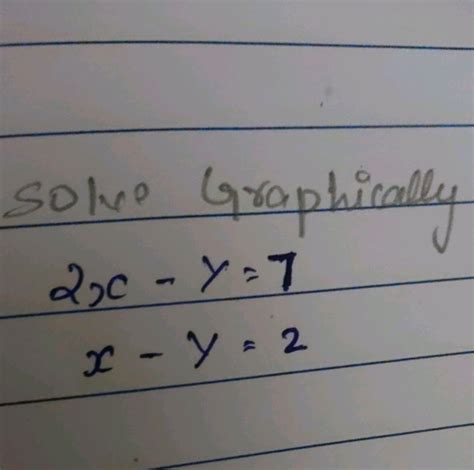 Solve Graphically
2x - y = 7
x - y = 2